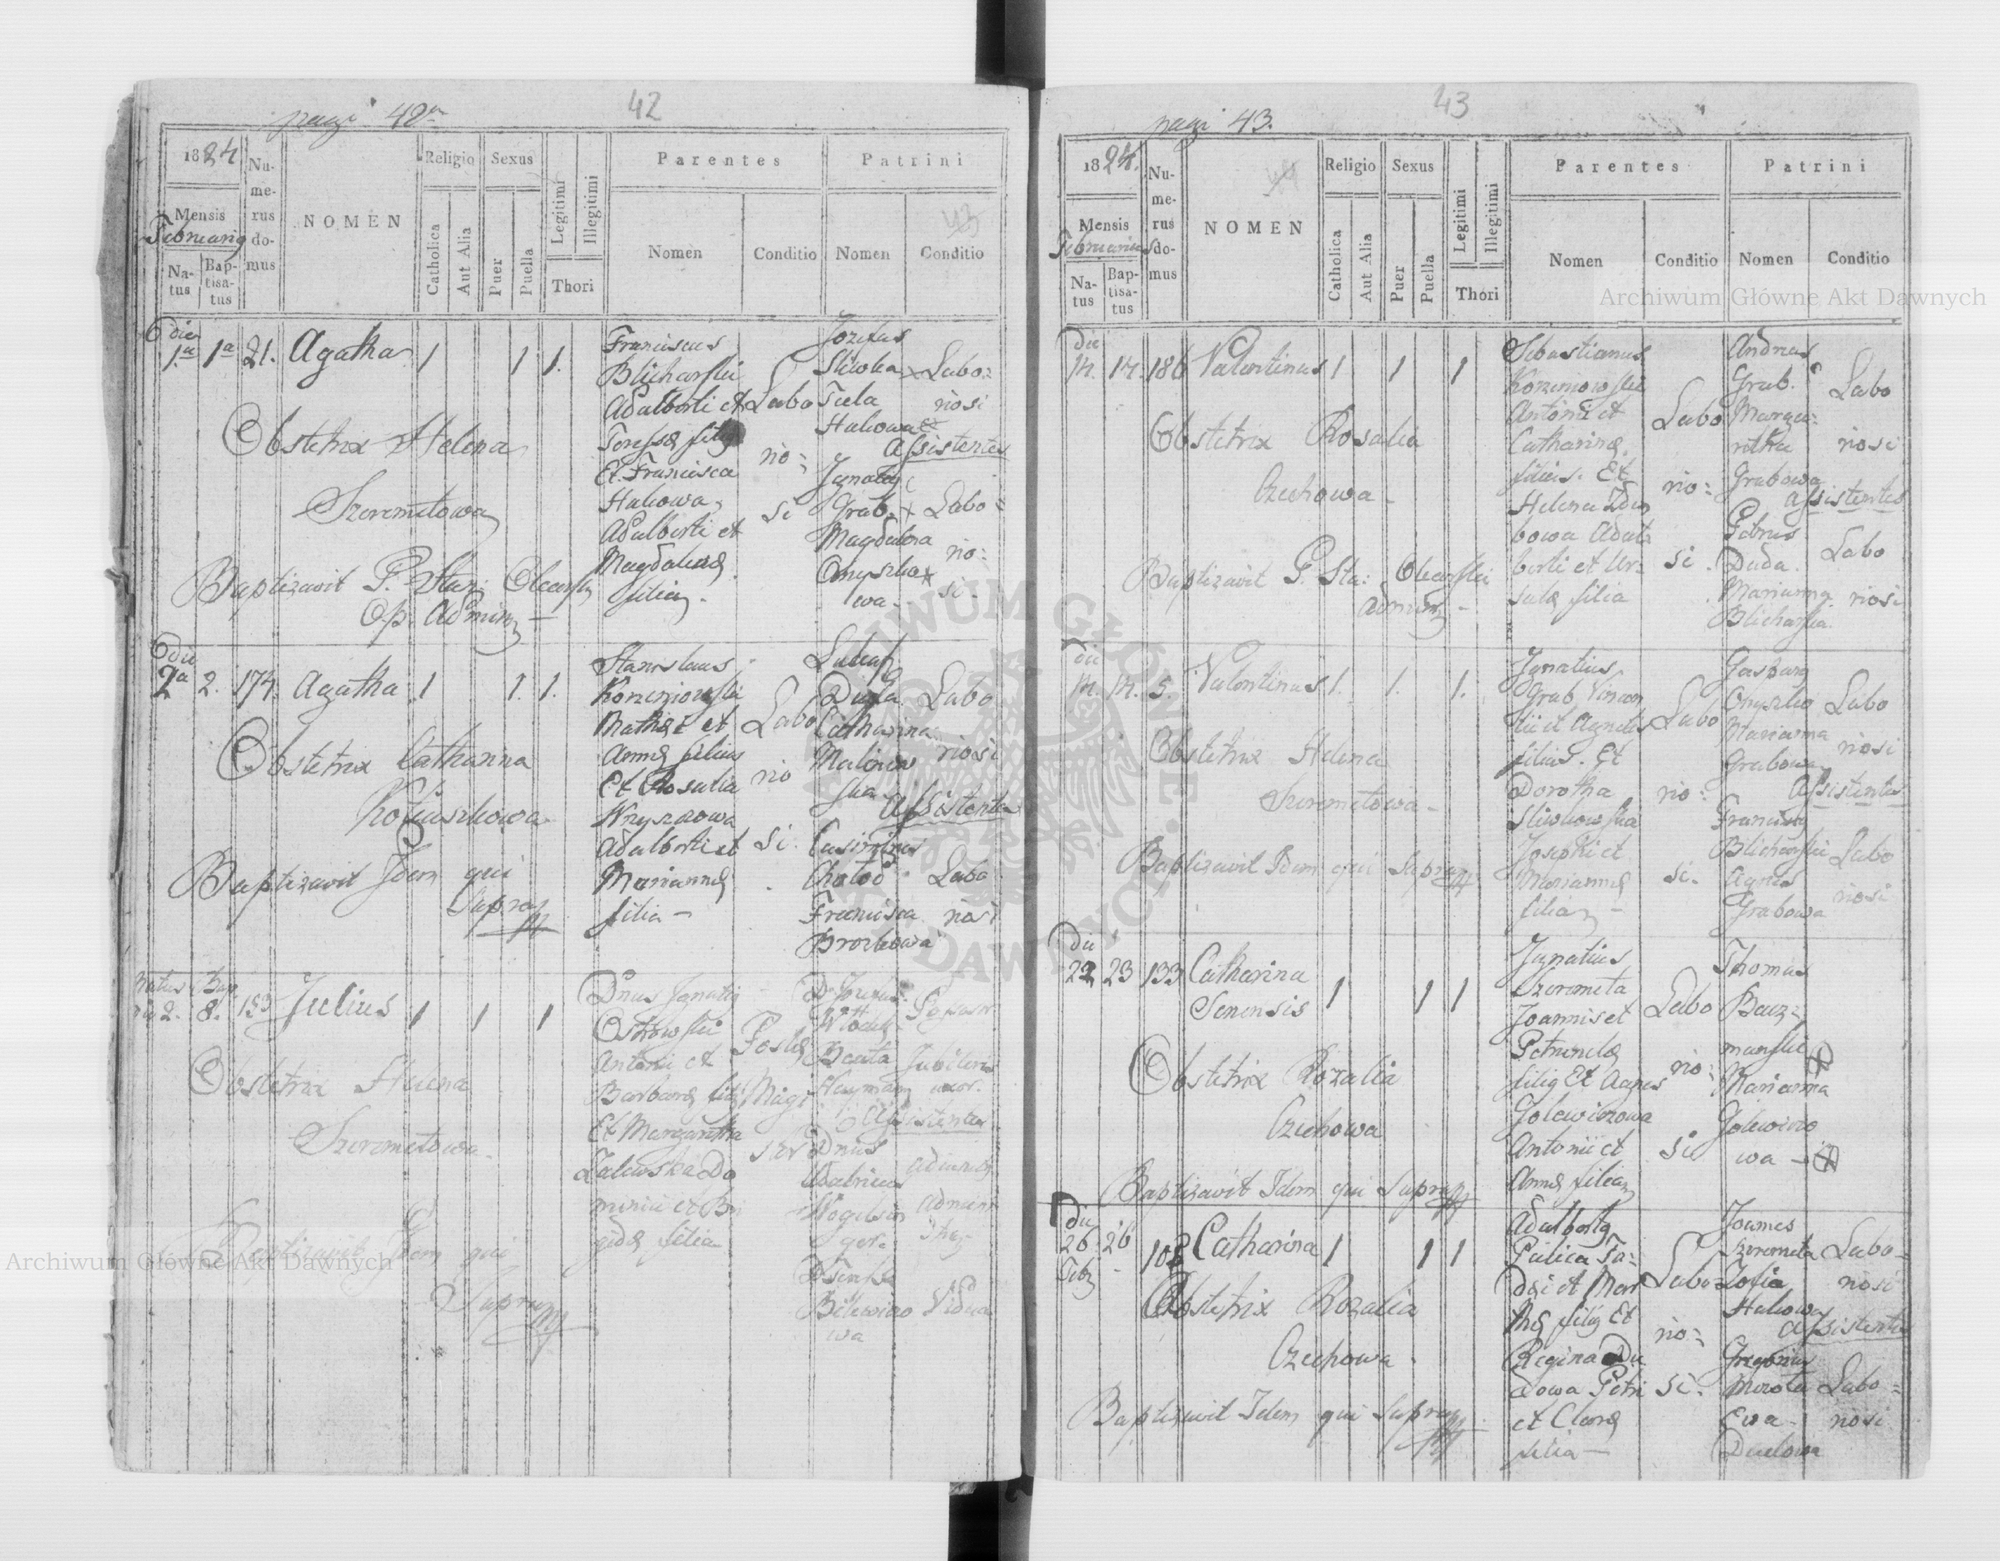 pagi 42
42
1824
Mensis
Februarius
Na-
tus
Bap-
tisa-
tus
Nu-
me-
rus
do-
mus
NOMEN
Religio
Catholica
Aut Alia
Sexus
Puer
Puella
Legitimi
Illegitimi
Thori
Parentes
Nomen
Conditio
Patrini
Nomen
Conditio
43
die
1a 1a 21. Agatha 1 1 1.
Obstetrix Helena
Szeremetowa
Baptizavit P. Stan: Olearski
Admin
Franciscus
Blicharski
Adalberti et
Teressæ filius
Et Francisca
Halowa
Adalberti et
Magdalenæ
filia.
Labo
rio:
si
Jozefus
Sliwka
Tecla
Halowa
Assistentes
Ignatius
Grab.
Magdalena
Onyszko
wa
Labo:
riosi
Labo=
rio:
si.
die
2a 2. 174. Agatha 1 1. 1.
Obstetrix Catharina
Kosciuszkowa
Baptizavit Idem qui
Supra
Stanislaus
Korzeniowski
Mathæi et
Annæ filius
Et Rosalia
Krzyszowa
Adalberti et
Mariannæ
filia —
Labo
rio
si.
Lucas
Duda
Catharina
Malinow
ska
Assistentes
Casimirus
Chołod
Francisca
Brozkowa
Labo
riosi
Labo
riosi
Natus Bap
die 2. 8. 153 Julius 1 1 1
Obstetrix Helena
Szeremetowa.
Baptizavit Idem qui
Supra
Dnus Ignatius
Ostrowski
Antonii et
Barbaræ filius
Et Margaretha
Zalewska Do
minici et Bri
gidæ filia
Postæ
Magi
ster
D. Jozefus
Beata
Haymann
Assistentes
Dnus
uxor.
Vidua
wa
pagi 43.
43
1824.
Mensis
Februarius
Na-
tus
Bap-
tisa-
tus
Nu-
me-
rus
do-
mus
NOMEN
44
Religio
Catholica
Aut Alia
Sexus
Puer
Puella
Legitimi
Illegitimi
Thori
Parentes
Nomen
Conditio
Patrini
Nomen
Conditio
die
14. 14. 186 Valentinus 1 1 1
Obstetrix Rosalia
Czechowa —
Baptizavit P. Sta: Olearski
Admin —
Sebastianus
Korzeniowski
Antonii et
Catharinæ
filius. Et
Helena Dem
bowa Adal
berti et Ur=
sulæ filia
Labo
rio:
si.
Andreas
Grab.
Marga:
retha
Grabowa
Assistentes
Petrus
Duda.
Marianna
Blicharska
Labo
riosi
Labo
riosi
die
14. 14. 5. Valentinus 1. 1. 1.
Obstetrix Helena
Szeremetowa —
Baptizavit Idem qui Supra
Ignatius
Grab Vincen
tii et Agnetis
filius. Et
Dorotha
Sliwkowska
Josephi et
Mariannæ
filia —
Labo
rio:
si.
Gaspar
Onyszko
Marianna
Grabowa
Assistentes
Franciscus
Blicharski
Agnes
Grabowa
Labo
riosi
Labo
riosi
die
22 23 133 Catharina
Senensis 1 1 1
Obstetrix Rozalia
Czechowa
Baptizavit Idem qui Supra
Ignatius
Szeremeta
Joannis et
Petrunelæ
filius Et Agnes
Golewizowa
Antonii et
Annæ filia
Labo
rio:
si
Thomas
Bacz=
manski
Marianna
Golewizo
wa —
die
26. 26 Catharina 1 1 1
Febr
Obstetrix Rozalia
Czechowa.
Baptizavit Idem qui Supra
Adalbertus
Pulica Ta=
dæi et Mar
thæ filius Et
Regina Du
dowa Petri
et Claræ
filia —
Labo
rio:
si.
Joannes
Szeremeta
Zofia
Halowa
Assistentes
Gregorius
Mrozla
Ewa
Dudowa
Labo=
riosi
Labo=
riosi
Archiwum Główne Akt Dawnych
Archiwum Główne Akt Dawnych
ARCHIWUM GŁÓWNE AKT DAWNYCH